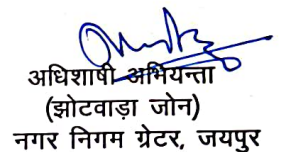 अधिशाषी अभियन्ता
(झोटवाड़ा जोन)
नगर निगम ग्रेटर, जयपुर